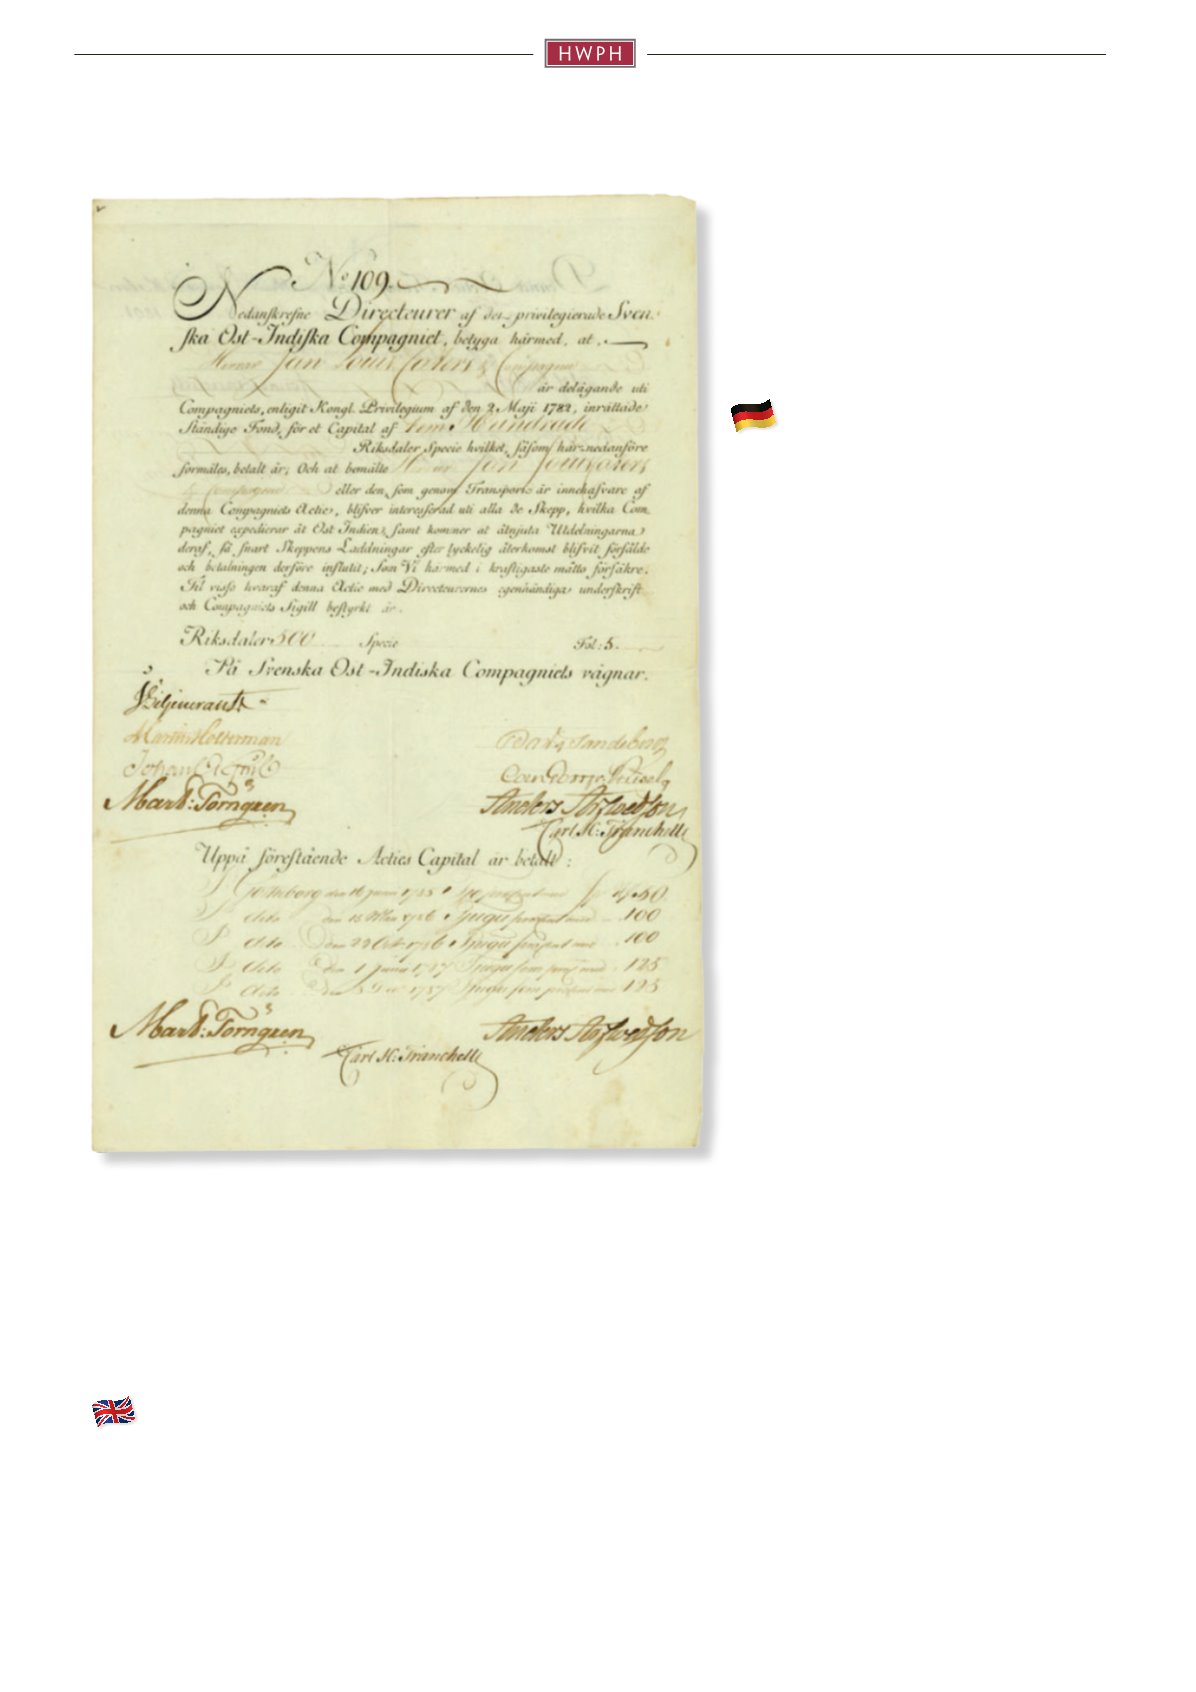 HWPH
No 109.
Nedanskrefne Directeurer af det privilegierade Sven-
ska Ost-Indiska Compagniet, betyga härmed, at
Herrar Jan Compagnie
är delägande uti
Compagniets, enligit Kongl. Privilegium af den 2 Maji 1782, inrättade
Ständige Fond, för et Capital af Fem Hundrade
Riksdaler Specie hvilket, såsom här nedanföre
förmäles, betalt är; Och at bemälte Herrar Jan
& Compagnie eller den, som genom Transport är innehafvare af
denna Compagniets Actie, blifver interesserad uti alla de Skepp, hvilka Com-
pagniet expedierar åt Ost Indien, samt kommer at åtnjuta Utdelningarna
deraf, så snart Skeppens Laddningar efter lyckelig återkomst blifvit försålde
och betalningen derföre influtit; Som Vi härmed i kraftigaste måtto försäkre.
Til visso hvaraf denna Actie med Directeurernes egenhändiga underskrift
och Compagniets Sigill bestyrkt är.
Riksdaler 500 Specie Fol: 5.
På Svenska Ost-Indiska Compagniets vägnar.
Martin Holterman
Mart: Törngren
Anders Arfwedson
Carl H: Tranchell
Uppå förestående Acties Capital är betalt:
Götheborg den 16 Junii 1785 50
dito den 15 1786 Tjugu procent med 100
dito den 22 Oct. 1786 Tjugu procent med 100
dito den 1 Junii 1787 Tjugu fem proc. med 125
dito den 1787 Tjugu fem procent med 125
Mart: Törngren
Anders Arfwedson
Carl H: Tranchell